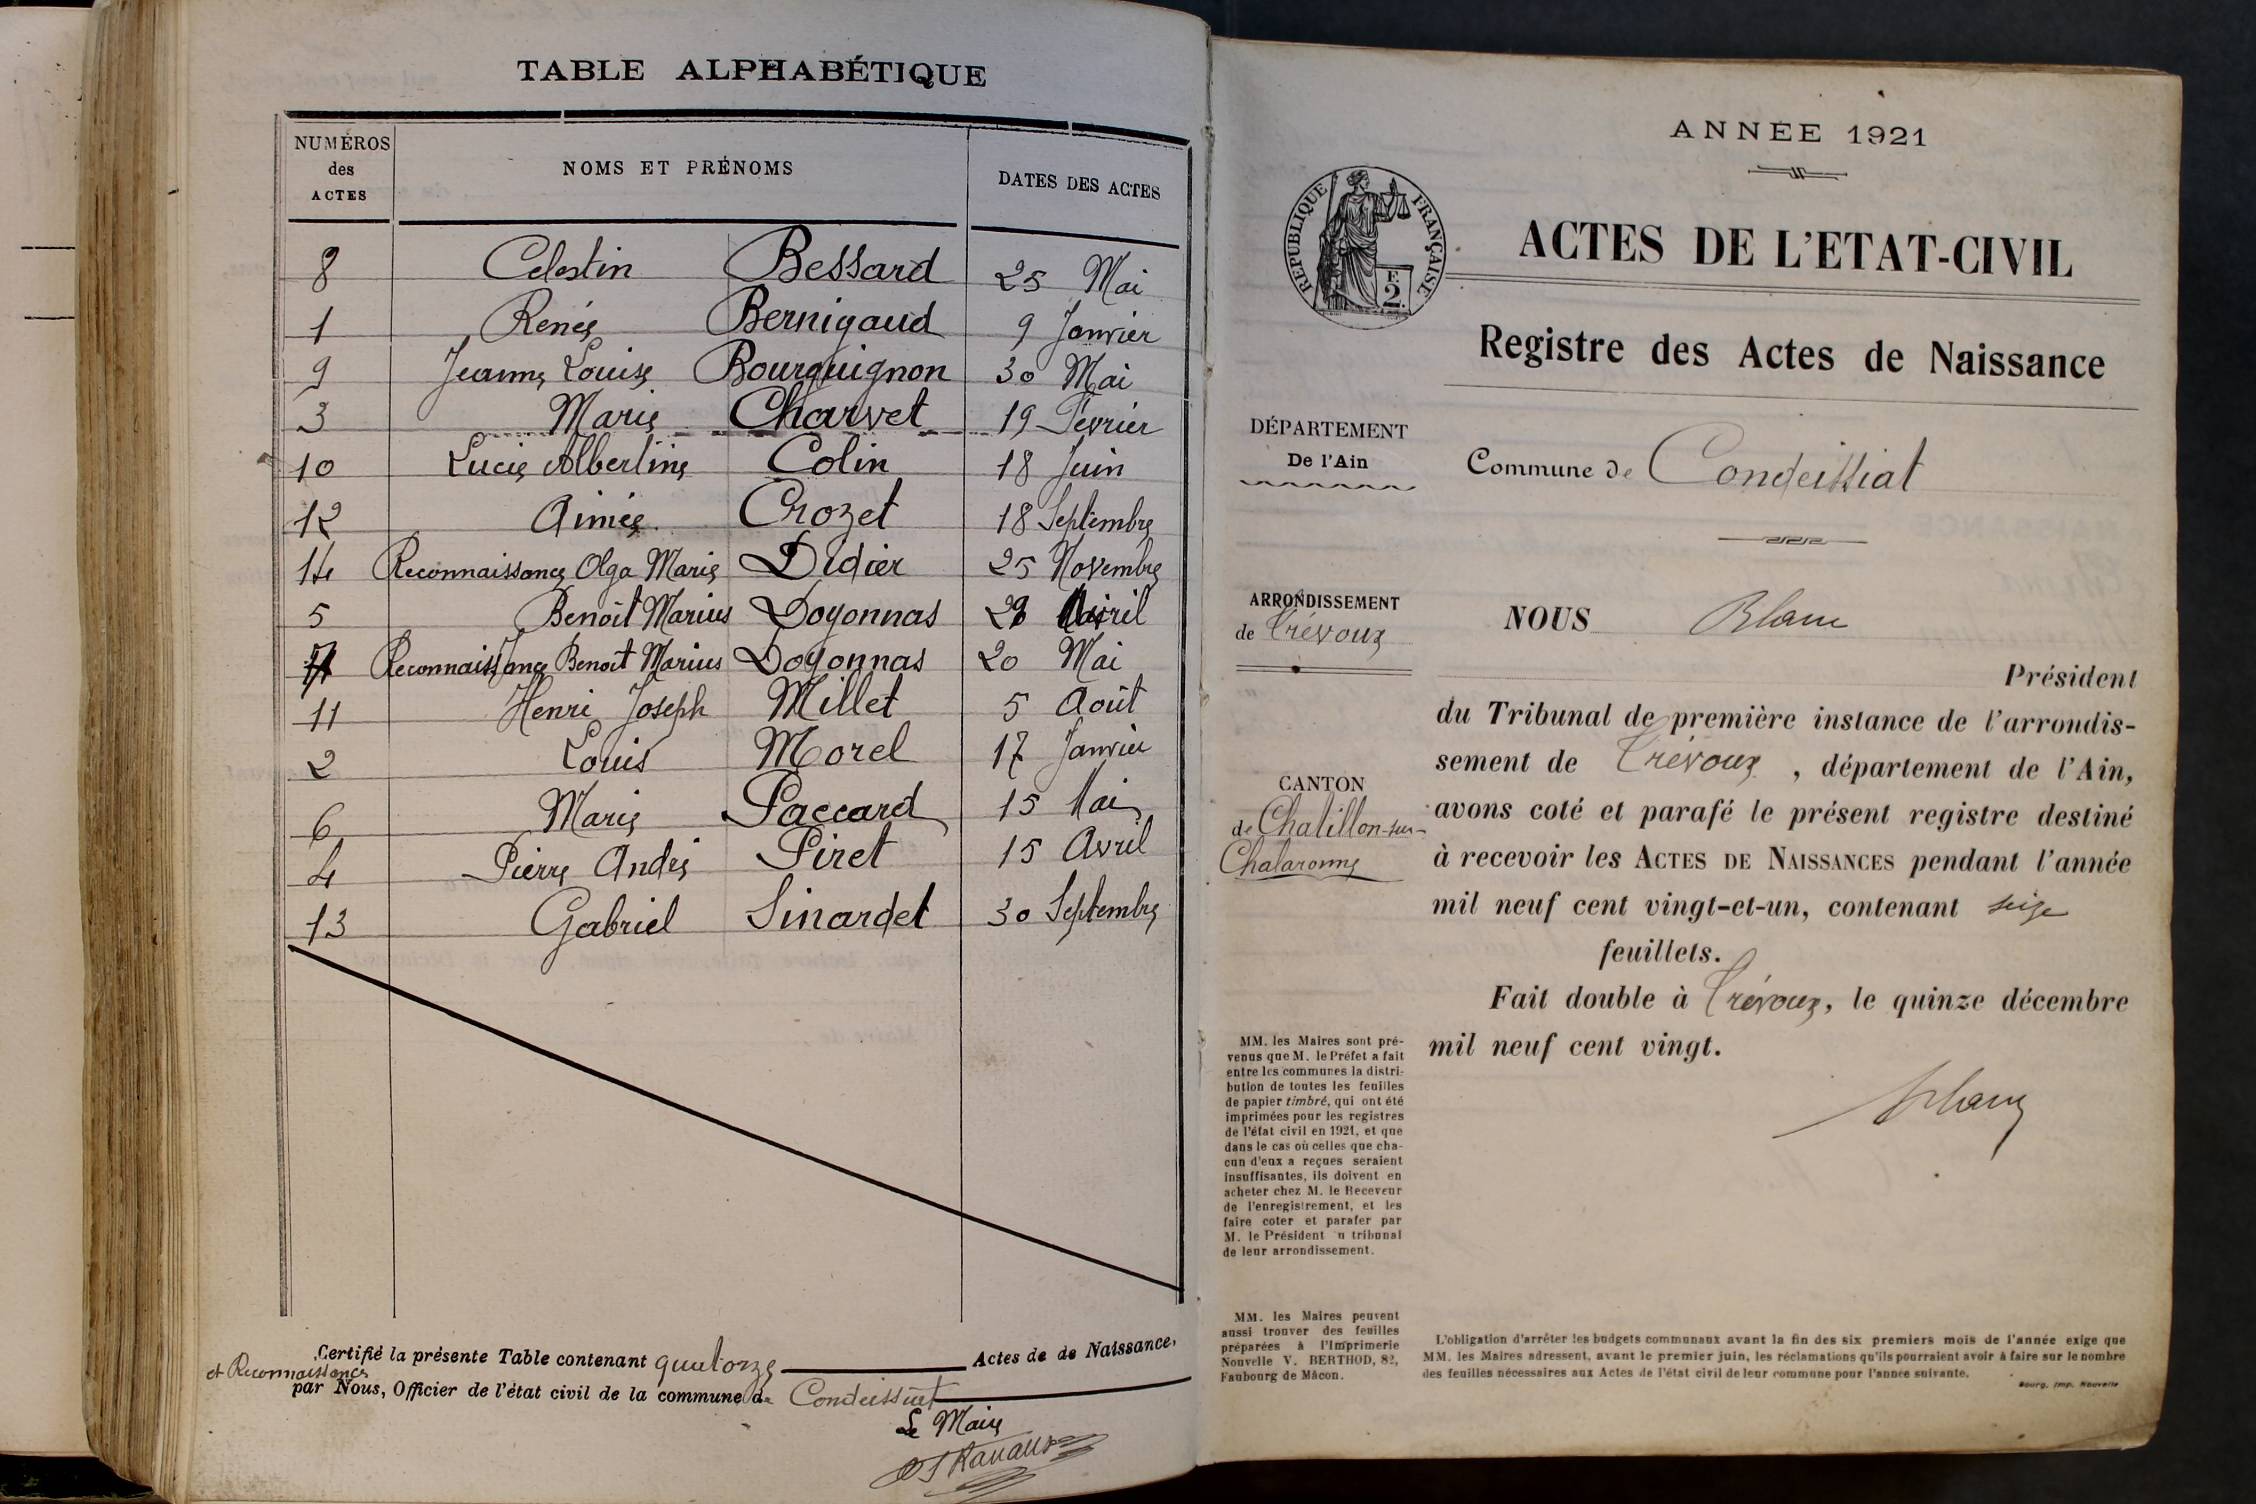 TABLE ALPHABÉTIQUE
NUMÉROS
des
ACTES
NOMS ET PRÉNOMS
DATES DES ACTES
8 Celestin Bessard 25 Mai
1 Renée Bernigaud 9 Janvier
9 Jeanne Louise Bourguignon 30 Mai
3 Marie Charvet 19 Février
10 Lucie Albertine Colin 18 Juin
12 Aimée Crozet 18 Septembre
14 Reconnaissance Olga Marie Didier 25 Novembre
5 Benoit Marius Doyonnas Avril
7 Reconnaissance Benoit Marius Doyonnas 20 Mai
11 Henri Joseph Millet 5 Août
2 Louis Morel 17 Janvier
6 Marie Paccard 15 Mai
4 Pierre André Piret 15 Avril
13 Gabriel Sinardet 30 Septembre
Certifié la présente Table contenant quatorze Actes de de Naissance,
et Reconnaissances
par Nous, Officier de l'état civil de la commune de Condeissiat
Le Maire
ANNÉE 1921
RÉPUBLIQUE FRANÇAISE
F.
2.
ACTES DE L'ETAT-CIVIL
Registre des Actes de Naissance
DÉPARTEMENT
De l'Ain
Commune de Condeissiat
ARRONDISSEMENT
de Trévoux
CANTON
de Chatillon-sur-
Chalaronne
NOUS Blanc
Président
du Tribunal de première instance de l'arrondis-
sement de Trévoux, département de l'Ain,
avons coté et parafé le présent registre destiné
à recevoir les ACTES DE NAISSANCES pendant l'année
mil neuf cent vingt-et-un, contenant seize
feuillets.
Fait double à Trévoux, le quinze décembre
mil neuf cent vingt.
Blanc
MM. les Maires sont pré-
venus que M. le Préfet a fait
entre les communes la distri-
bution de toutes les feuilles
de papier timbré, qui ont été
imprimées pour les registres
de l'état civil en 1921, et que
dans le cas où celles que cha-
cun d'eux a reçues seraient
insuffisantes, ils doivent en
acheter chez M. le Receveur
de l'enregistrement, et les
faire coter et parafer par
M. le Président u tribunal
de leur arrondissement.
MM. les Maires peuvent
aussi trouver des feuilles
préparées à l'Imprimerie
Nouvelle V. BERTHOD, 82,
Faubourg de Mâcon.
L'obligation d'arrêter les budgets communaux avant la fin des six premiers mois de l'année exige que
MM. les Maires adressent, avant le premier juin, les réclamations qu'ils pourraient avoir à faire sur le nombre
des feuilles nécessaires aux Actes de l'état civil de leur commune pour l'année suivante.
Bourg, Imp. Nouvelle